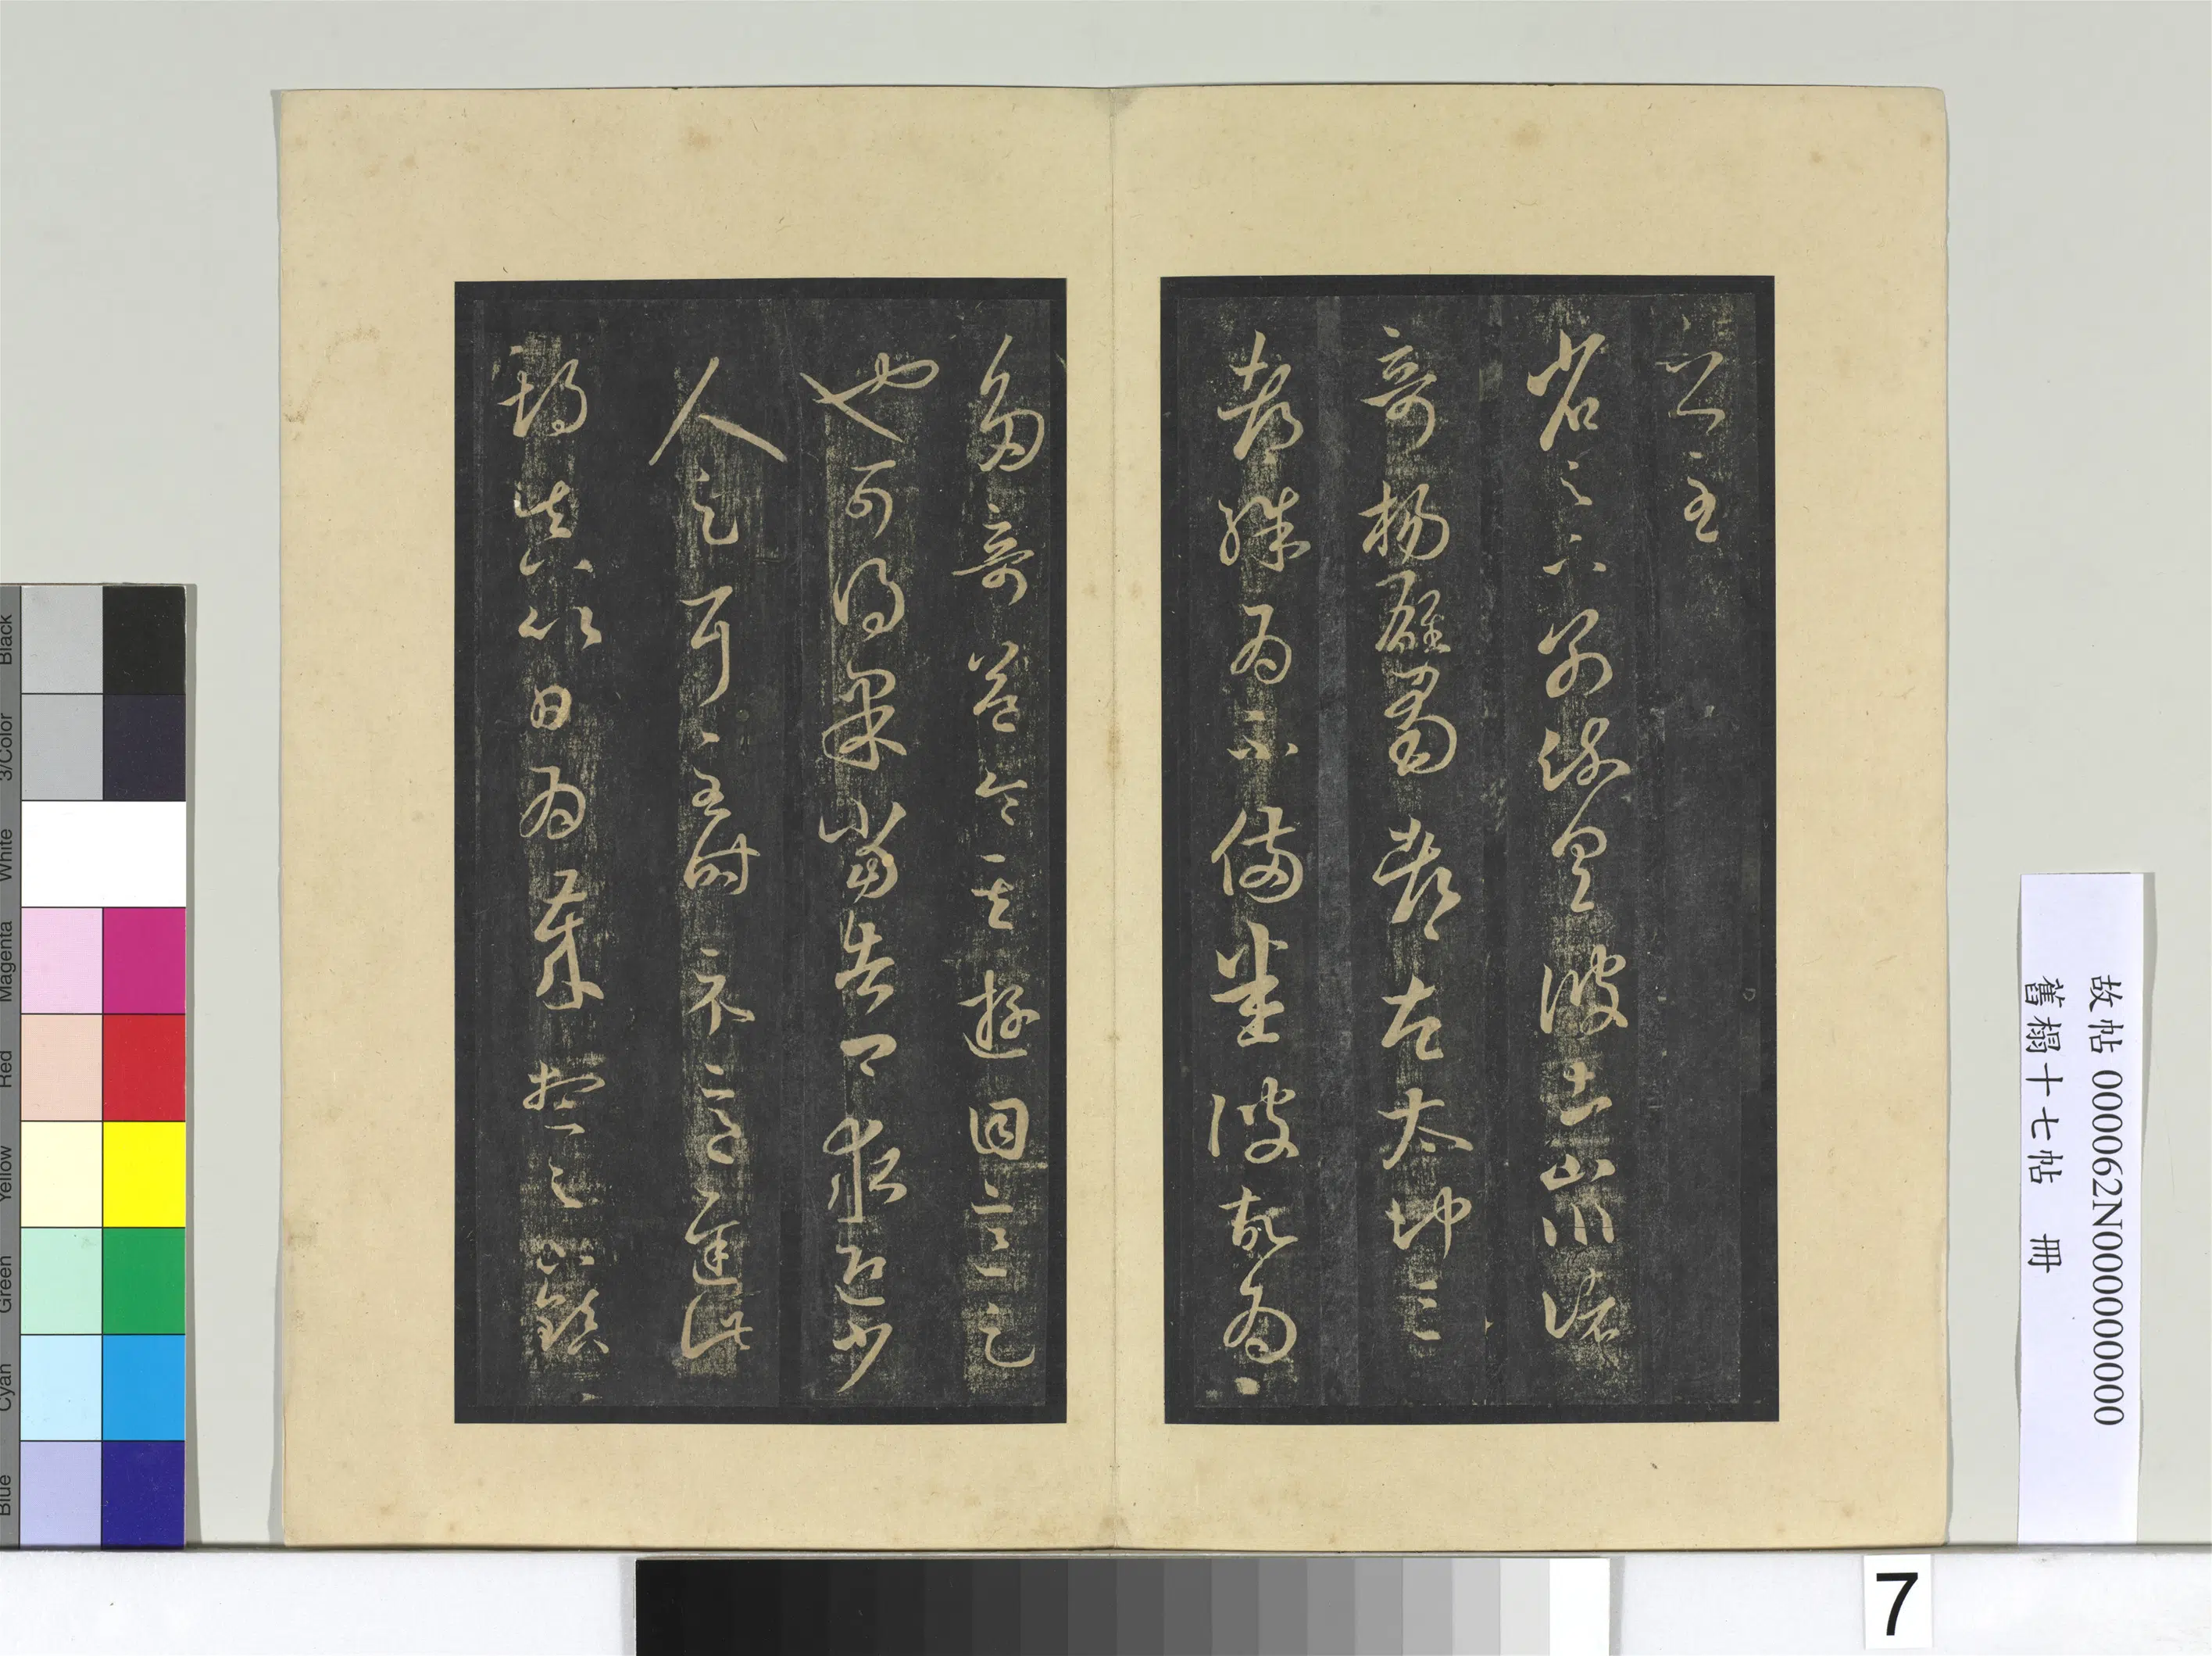 之至
省足下別疏具彼土山川諸
奇楊雄蜀都左太沖三
都殊為不備悉彼故為
多奇益令其遊目意足
也可得果當告卿求迎少
人足耳至時示意遲此
期真以日為歲想足下鎮
故帖 000062N000000000
舊榻十七帖 冊
7
Black
3/Color
White
Magenta
Red
Yellow
Green
Cyan
Blue